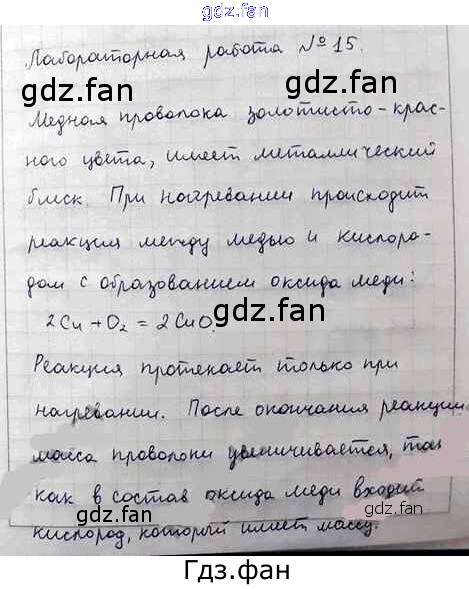 gdz.fan
Лабораторная работа №15.
gdz.fan
gdz.fan
Медная проволока золотисто-крас-
ного цвета, имеет металлический
блеск. При нагревании происходит
gdz.fan
реакция между медью и кислоро-
дом с образованием оксида меди:
2Cu + O₂ = 2CuO.
gdz.fan
Реакция протекает только при
gdz.fan
нагревании. После окончания реакции
масса проволоки увеличивается, так
как в состав оксида меди входит
gdz.fan
gdz.fan
кислород, который имеет массу.
Гдз.фан